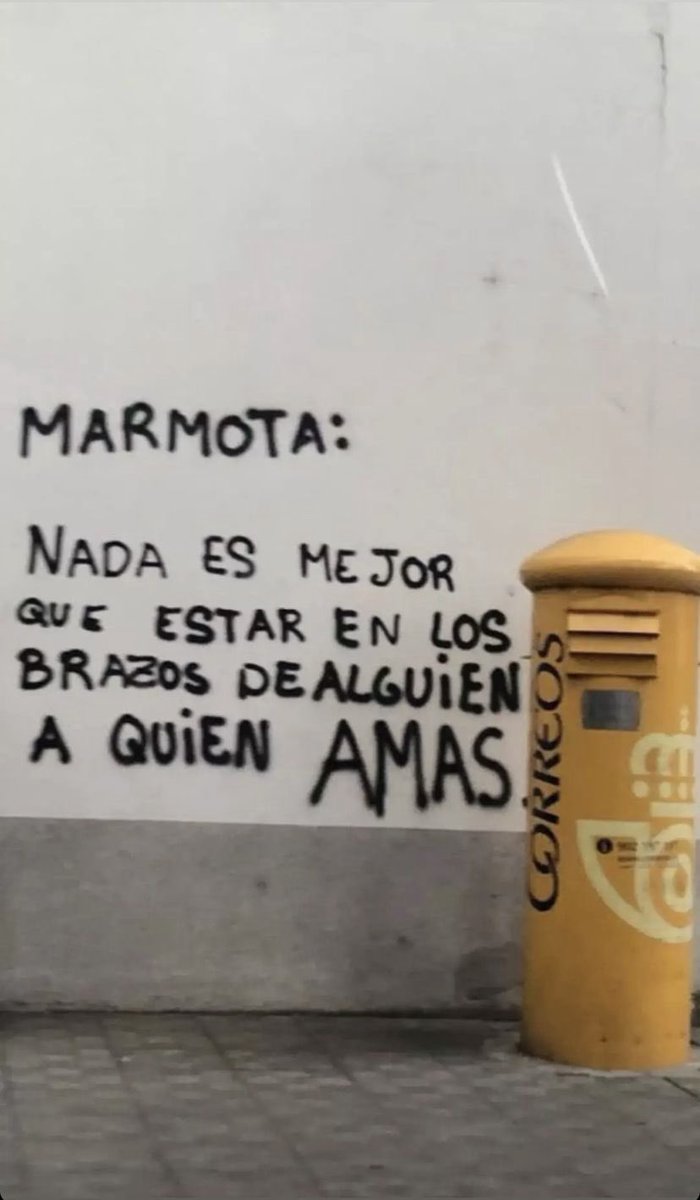 MARMOTA:
NADA ES MEJOR
QUE ESTAR EN LOS
BRAZOS DE ALGUiEN
A QUiEN AMAS.
CORREOS